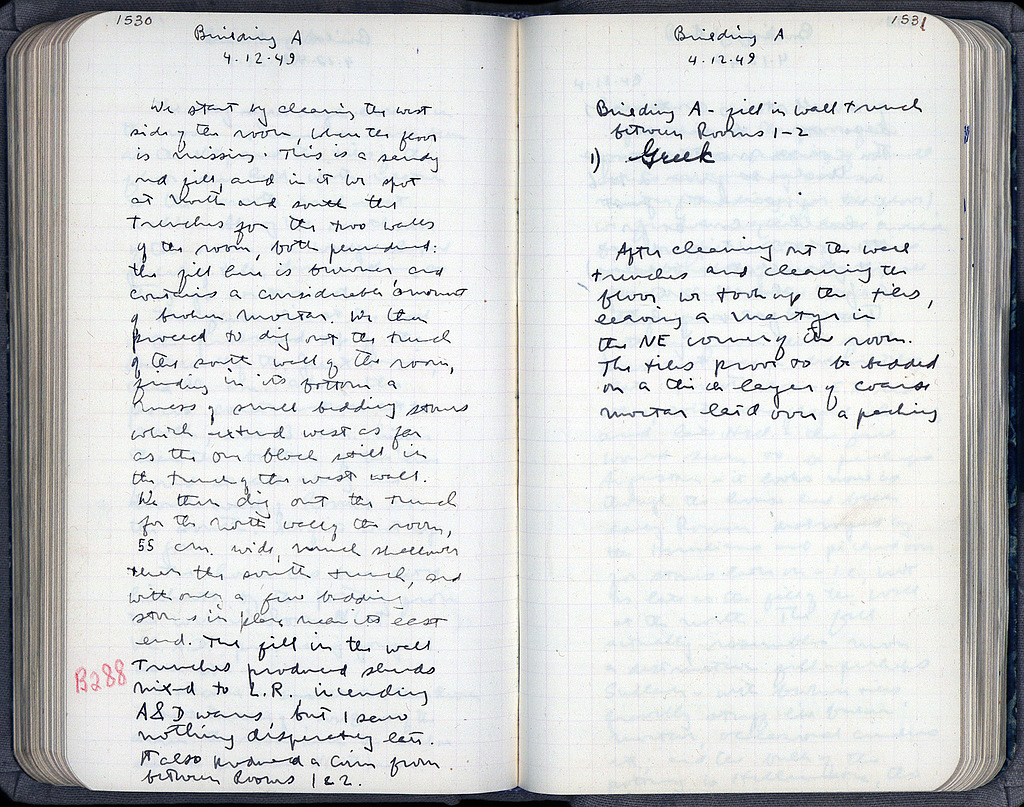 1530
Building A
4.12.49
We start by cleaning the west
side of the room, where the floor
is missing. This is a sandy
red fill, and in it we spot
at north and south the
trenches for the two walls
of the room, both plundered:
the fill here is browner and
contains a considerable amount
of broken mortar. We then
proceed to dig out the trench
of the south wall of the room,
finding in its bottom a
mass of small bedding stones
which extend west as far
as the one block still in
the trench of the west wall.
We then dig out the trench
for the north wall of the room,
55 cm. wide, much shallower
than the south trench, and
with only a few bedding
stones in place near its east
end. The fill in the wall
B288
trenches produced sherds
mixed to L.R. including
A&D wares, but I saw
nothing desperately late.
It also produced a coin from
between Rooms 1&2.
1531
Building A
4.12.49
Building A - fill in wall trench
between Rooms 1-2
1) Greek
After cleaning out the wall
trenches and cleaning the
floor we took up the tiles,
leaving a martyr in
the NE corner of the room.
The tiles prove to be bedded
on a thick layer of coarse
mortar laid over a packing